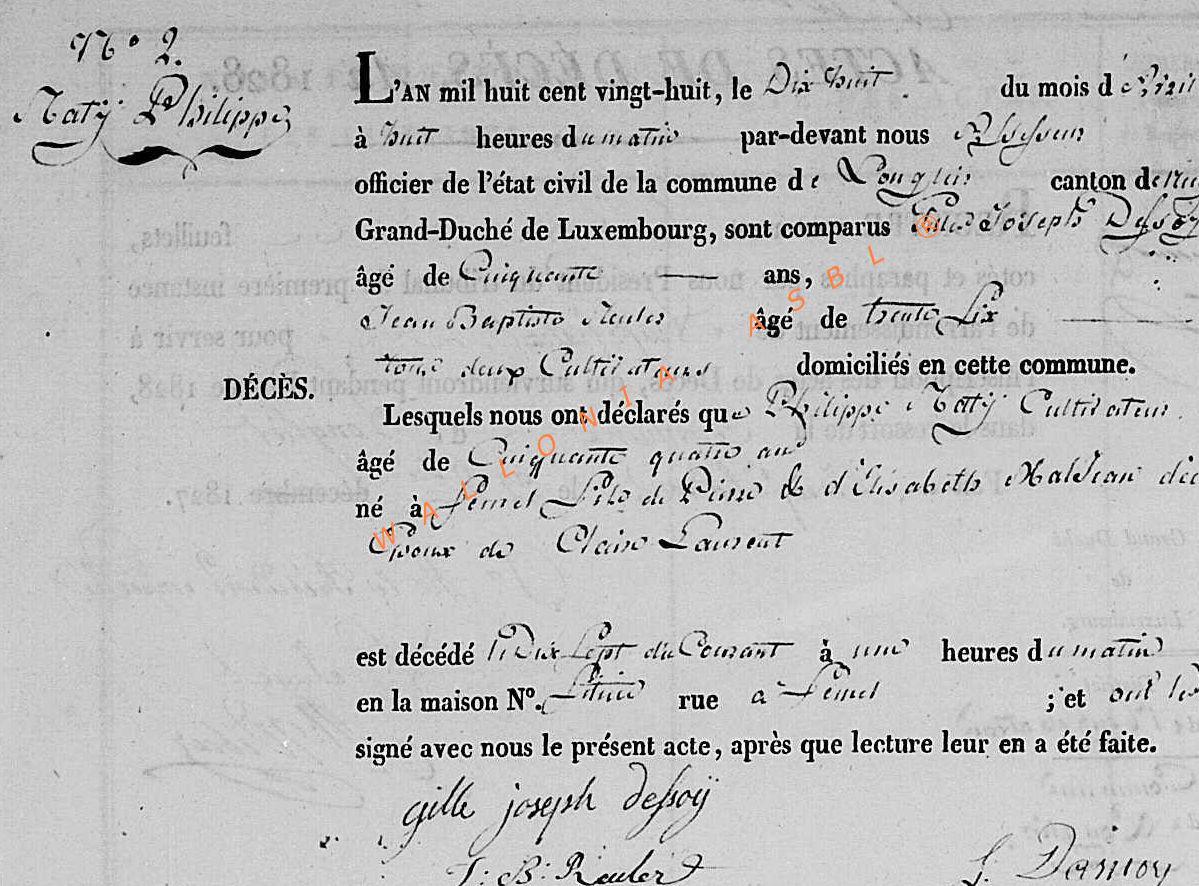 N° 2.
Naty Philippe
L'AN mil huit cent vingt-huit, le Dix huit du mois d'
à huit heures du matin par-devant nous Assesseur
officier de l'état civil de la commune de Longlier canton de
Grand-Duché de Luxembourg, sont comparus Gille Joseph Dessoy
âgé de Cinquante ans,
Jean Baptiste Reuler âgé de trente six
tous deux Cultivateurs domiciliés en cette commune.
DÉCÈS.
Lesquels nous ont déclarés que Philippe Naty Cultivateur
âgé de Cinquante quatre ans
né à Lemel fils de Pierre & d'Elisabeth
Epoux de Claire Laurent
est décédé le Dix Sept du Courant à une heures du matin
en la maison N°. Située rue à Lemel ; et ont
signé avec nous le présent acte, après que lecture leur en a été faite.
gille joseph dessoÿ
J: B: Reuler
WALLONIA ASBL ©